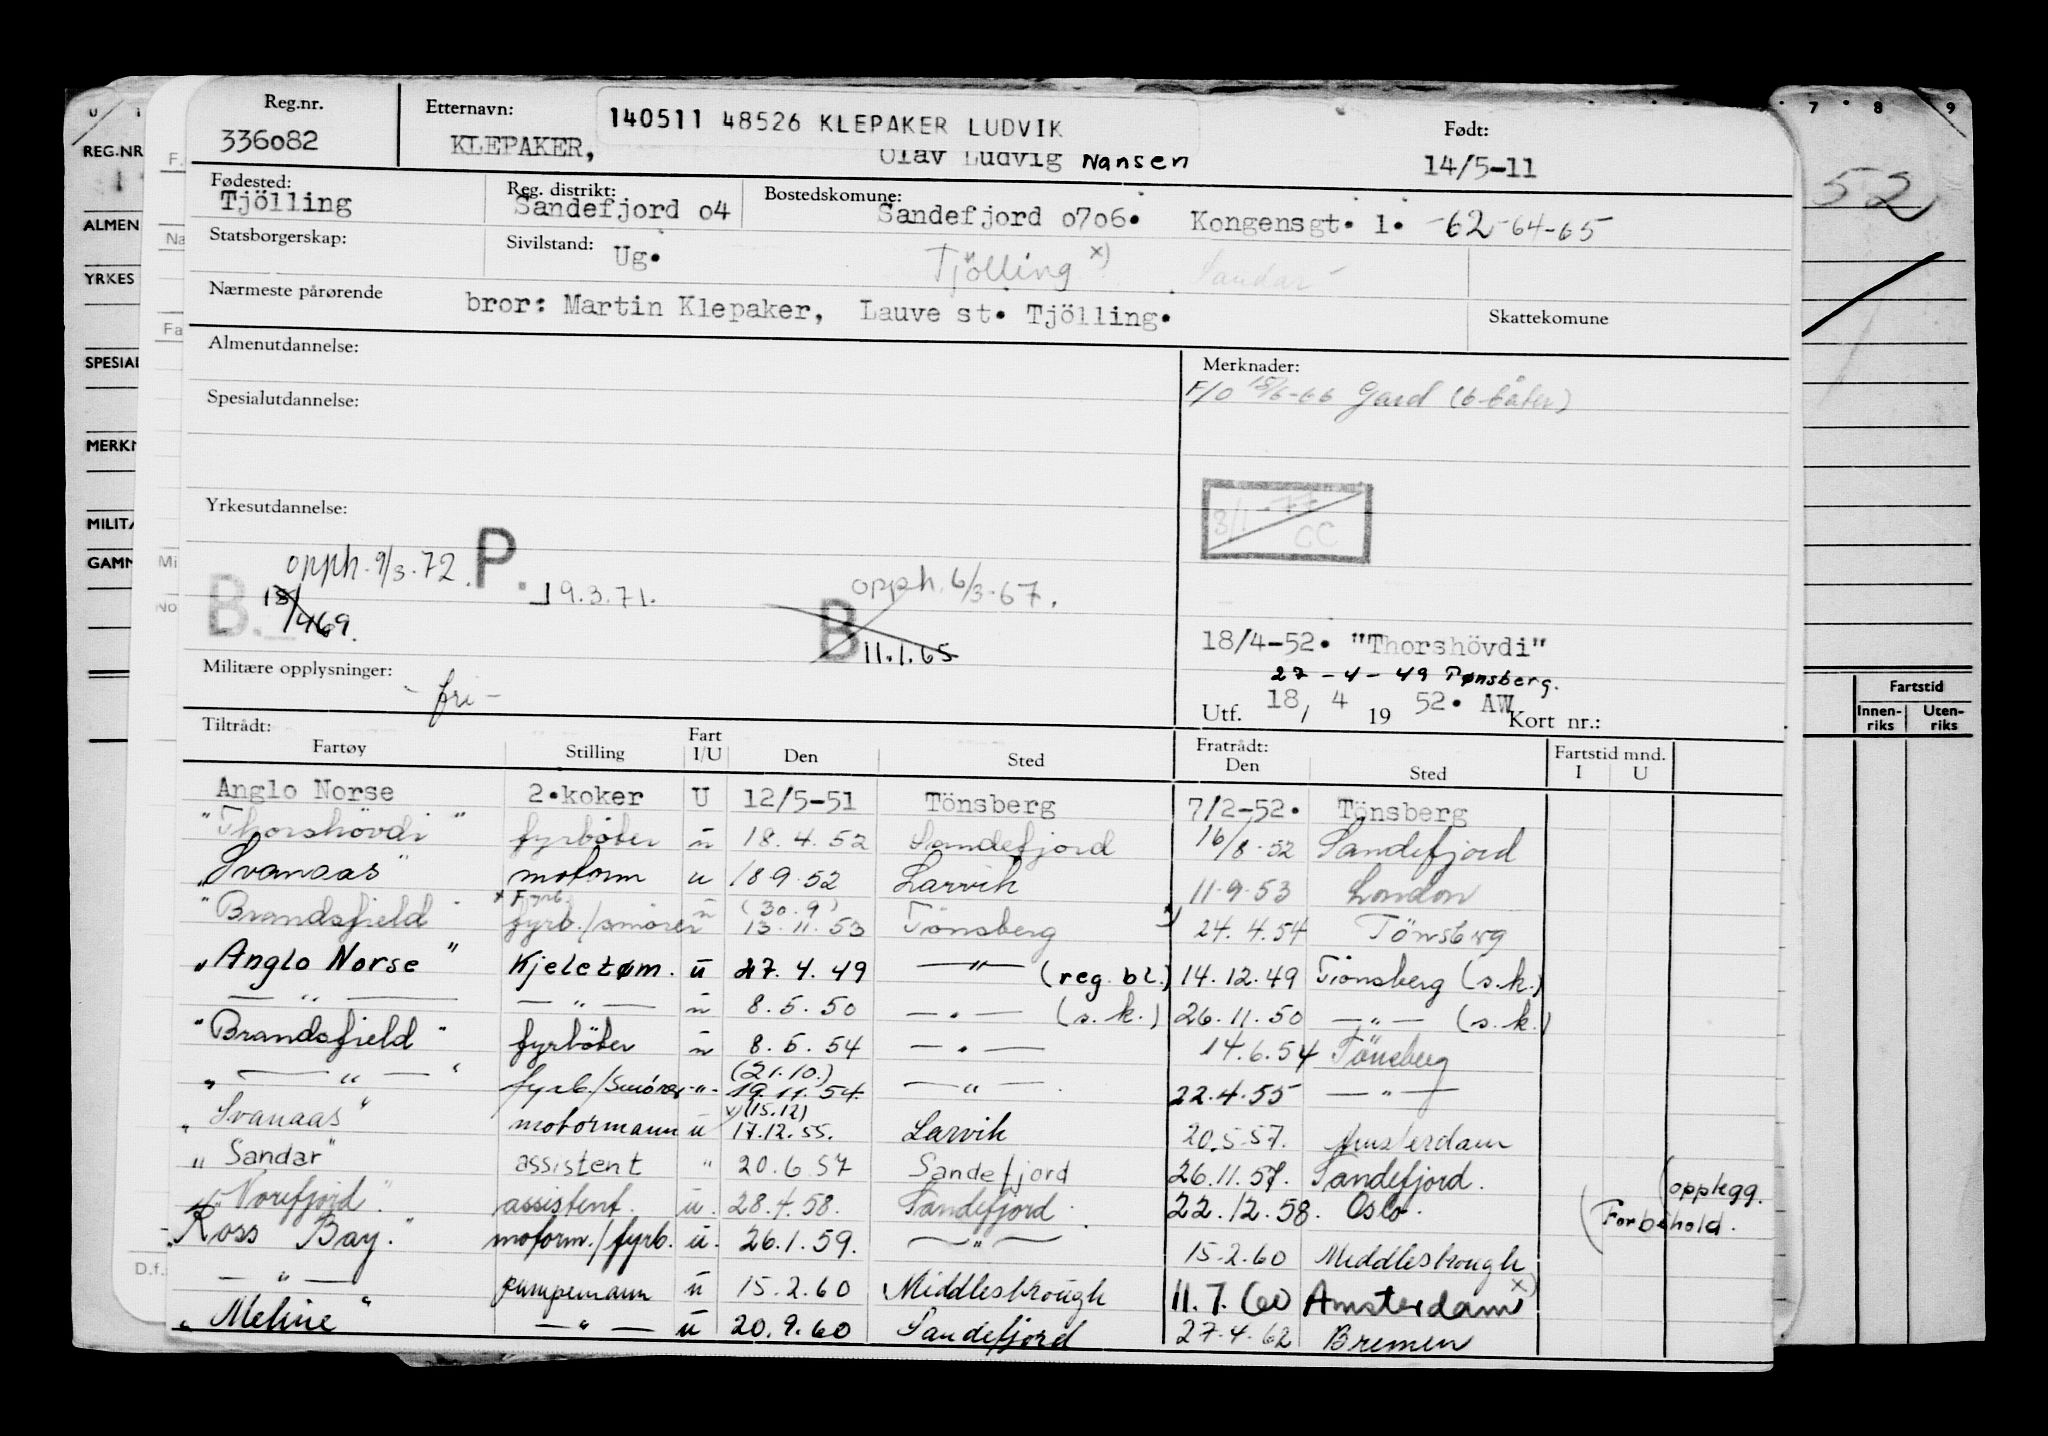 Reg.nr. Etternavn: 140511 48526 KLEPAKER LUDVIK Født: 7 8 9
336082 KLEPAKER, Olav Ludvig Nansen 14/5-11
REG.NR
52
Fødested: Reg. distrikt: Bostedskomune:
Tjölling Sandefjord o4 Sandefjord o7o6. Kongensgt. 1. -62-64-65
ALMEN
Statsborgerskap: Sivilstand: Ug. Tjölling x) Sandar
YRKES
Nærmeste pårørende bror: Martin Klepaker, Lauve st. Tjölling. Skattekomune
Almenutdannelse: Merknader:
SPESIAL
F/O 15/6-66 Gard (6 båter)
Spesialutdannelse:
MERKN
Yrkesutdannelse: 3/1-77
CC
MILITÆ
GAMM
opph. 9/3.72. P. 19.3.71. opph. 6/3-67.
B. 13/469. B 11.1.65
18/4-52. "Thorshövdi"
Militære opplysninger: - fri - 27-4-49 Tønsberg.
Utf. 18/ 4 19 52. AW Kort nr.:
Fartstid
Innen-riks Uten-riks
Tiltrådt: Fratrådt: Fartstid mnd.
Fartøy Stilling Fart I/U Den Sted Den Sted I U
Anglo Norse 2.koker U 12/5-51 Tönsberg 7/2-52. Tönsberg
"Thorshövdi" fyrböter u 18.4.52 Sandefjord 16/8-52 Sandefjord
"Svanaas" motorm u 18.9.52 Larvik 11.9.53 London
x Fyrb. (30.9)
"Brandsfield" fyrb./smörer u 13.11.53 Tönsberg x) 24.4.54 Tönsberg
"Anglo Norse" Kjeletøm. u 27.4.49 —"— (reg. bl.) 14.12.49 Tönsberg (s.k.)
—"— —"— u 8.5.50 —"— (s.k.) 26.11.50 —"— (s.k.)
"Brandsfield" fyrböter u 8.5.54 —"— 14.6.54 Tönsberg
(21.10.)
"—"—" fyrb./Smörer -"- 19.11.54. —"— 22.4.55 —"—
v) (15.12)
"Svanaas" motormann u 17.12.55. Larvik 20.5.57. Amsterdam
"Sandar" assistent " 20.6.57 Sandefjord 26.11.57. Sandefjord. (opplegg.
"Norefjord" assistent. u. 28.4.58. Sandefjord. 22.12.58. Oslo. (Forbehold.
"Ross Bay." motorm./fyrb. u. 26.1.59. —"— 15.2.60 Middlesbrough
—"— pumpemann u 15.2.60 Middlesbrough 11.7.60 Amsterdam x)
D.f.:
"Meline" —"— u 20.9.60 Sandefjord 27.4.62 Bremen